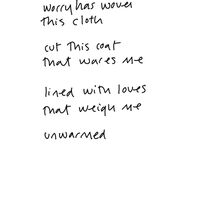 worry has woven
this cloth
cut this coat
that wares me
lined with loves
that weigh me
unwarmed